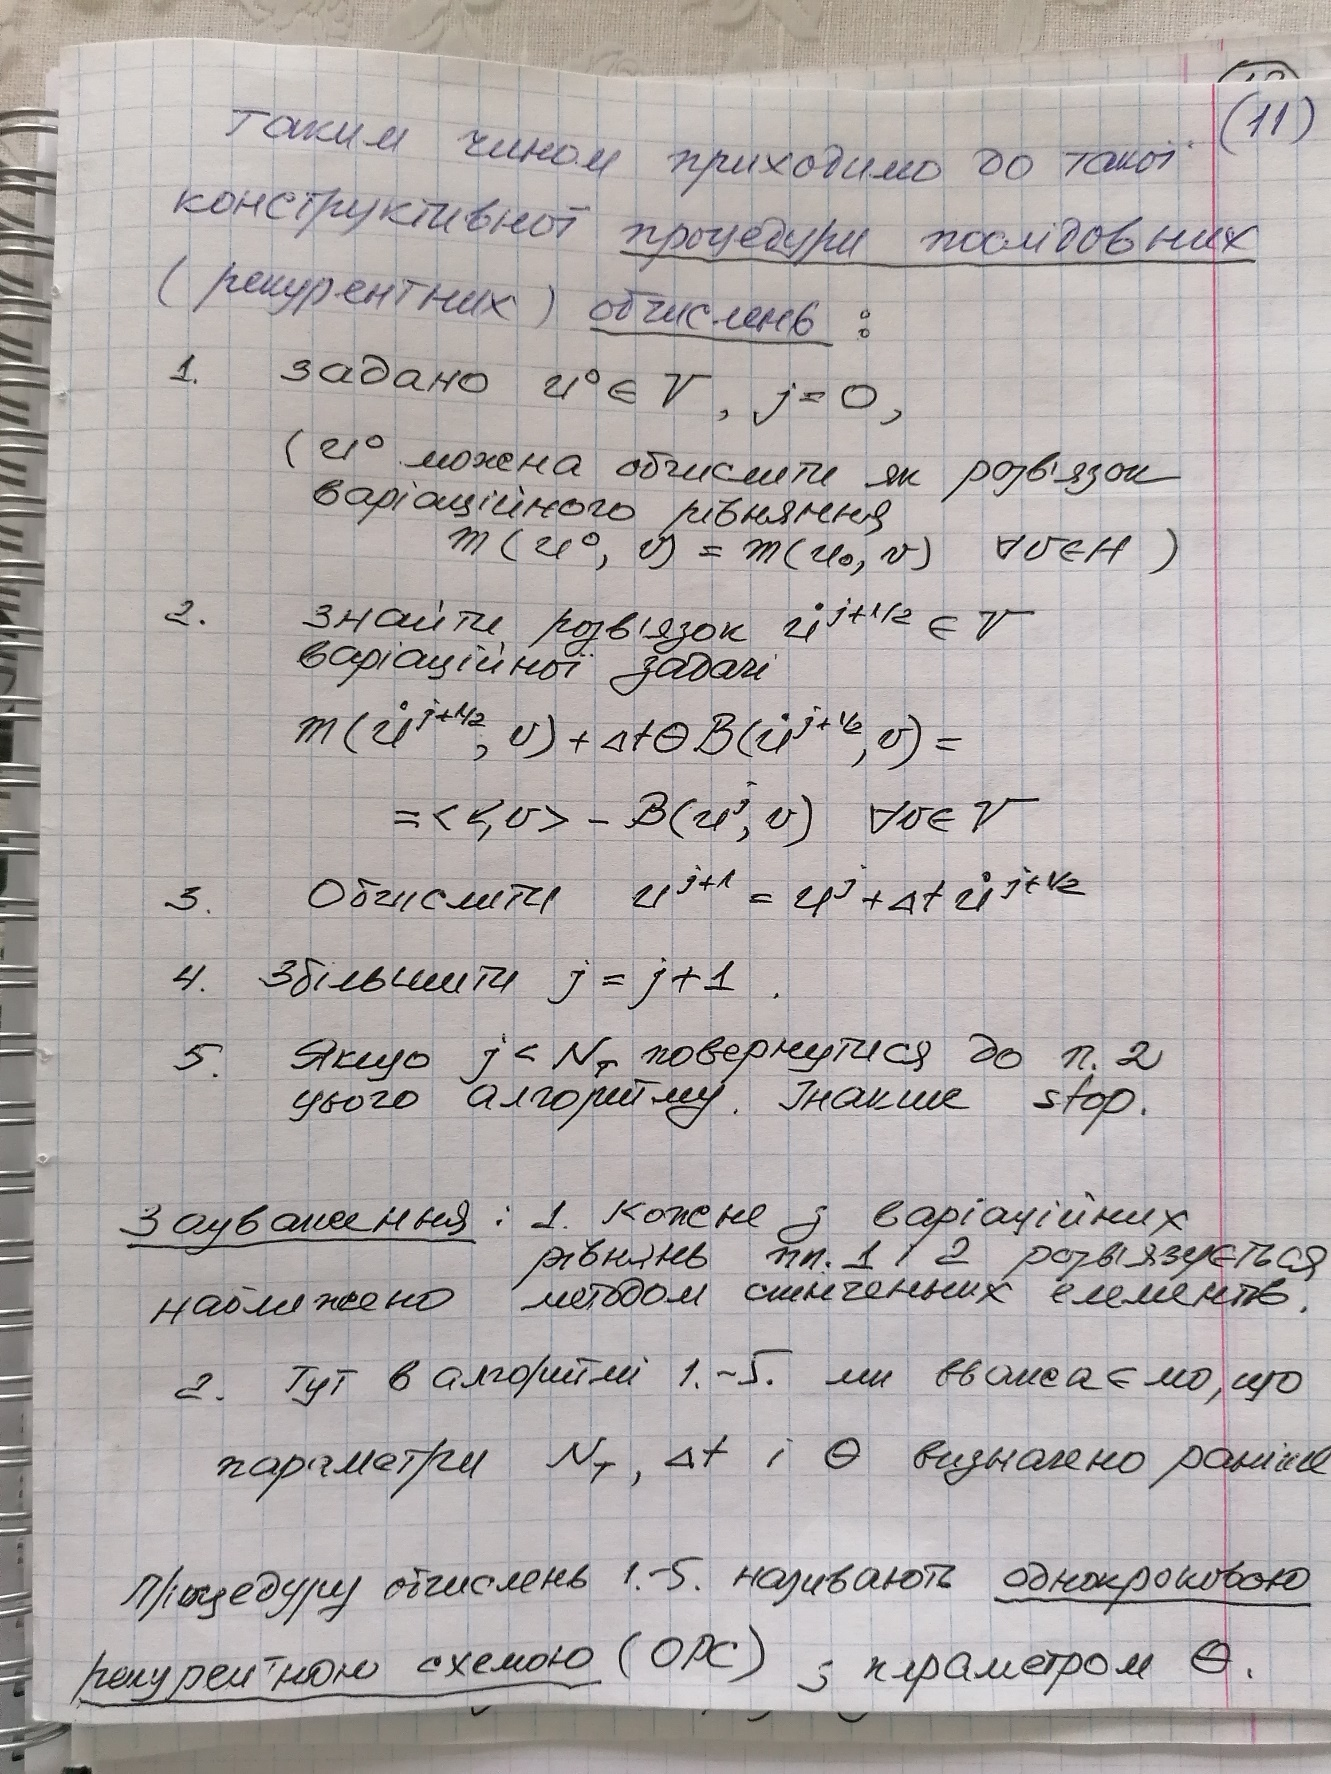 (11)
Таким чином приходимо до такої
конструктивної процедури послідовних
(рекурентних) обчислень :
1. задано u⁰ ∈ V, j = 0,
(u⁰ можна обчислити як розв'язок
варіаційного рівняння
m(u⁰, v) = m(u₀, v) ∀v∈H )
2. знайти розв'язок u̇^{j+1/2} ∈ V
варіаційної задачі
m(u̇^{j+1/2}, v) + Δt θ B(u̇^{j+1/2}, v) =
= < , v> - B(u^j, v) ∀v∈V
3. Обчислити u^{j+1} = u^j + Δt u̇^{j+1/2}
4. Збільшити j = j+1 .
5. Якщо j < N_T повернутися до п. 2
цього алгоритму. Інакше stop.
Зауваження : 1. Кожне з варіаційних
рівнянь пп. 1 і 2 розв'язується
наближено методом скінченних елементів.
2. Тут в алгоритмі 1.-5. ми вважаємо, що
параметри N_T, Δt і θ визначено раніше
Процедуру обчислень 1.-5. називають однокроковою
рекурентною схемою (ОРС) з параметром θ.